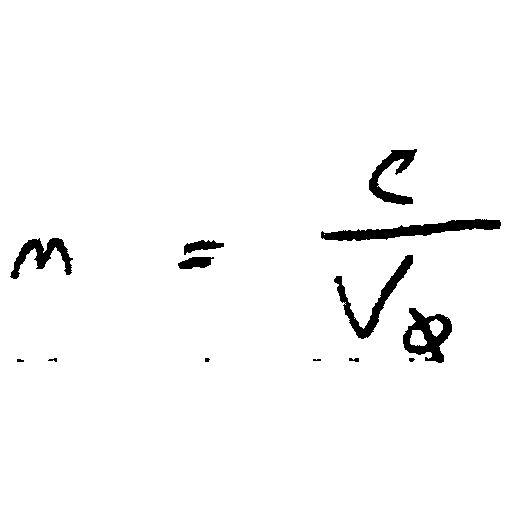 m = \frac{c}{V_{\phi}}